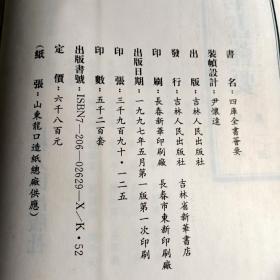 書名：四庫全書薈要
裝幀設計：尹懷遠
出版：吉林人民出版社
發行：吉林人民出版社 吉林省新華書店
印刷：長春新華印刷廠 長春市東新印刷廠
出版日期：一九九七年五月第一版第一次印刷
印張：三千九百九十·一二五
印數：五千二百套
出版書號：ISBN7-206-02629-X/K·52
定價：六千八百元
（紙張：山東龍口造紙總廠供應）